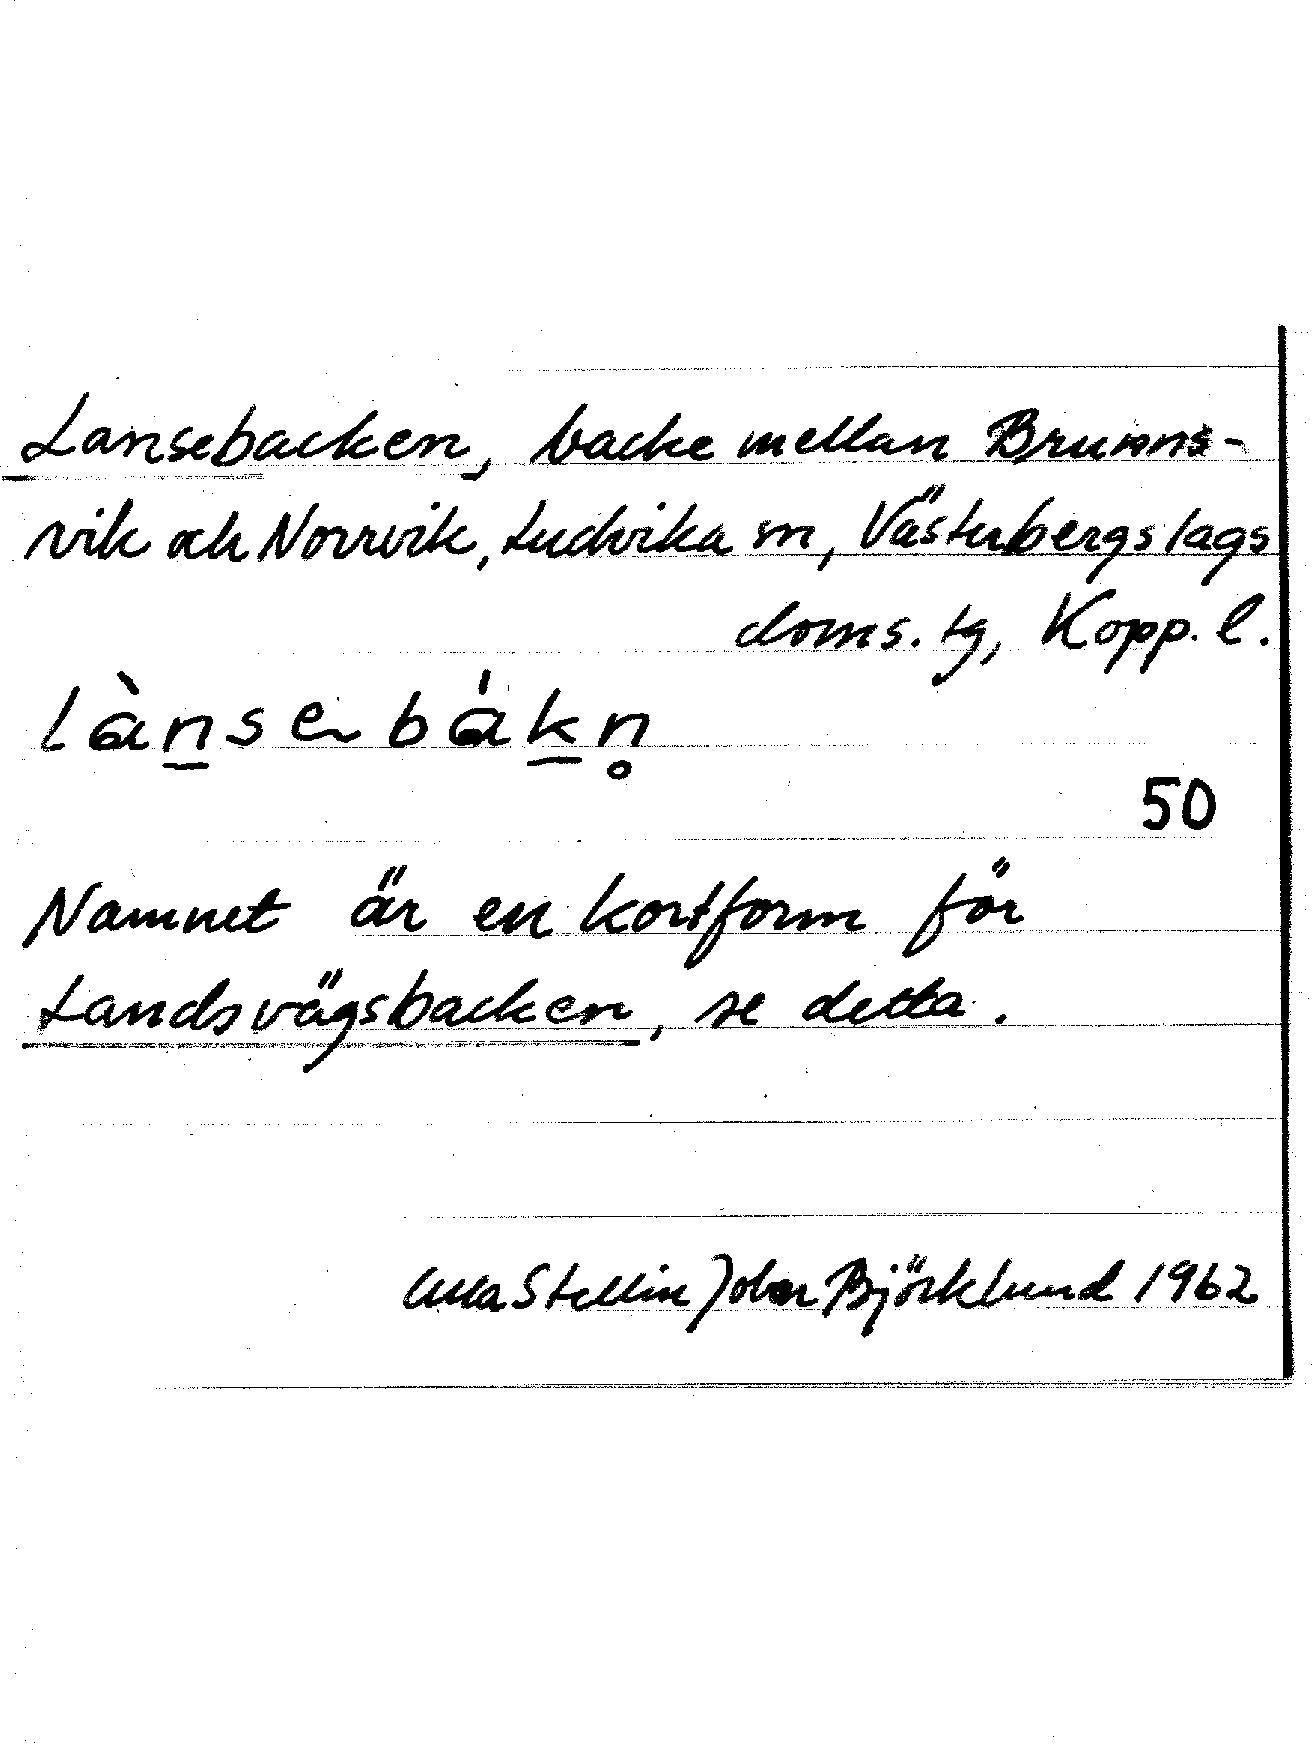 Lansebacken, backe mellan Brunns-
vik och Norrvik, Ludvika m, Västerbergslags
doms. tg, Kopp. l.
là̱nsebáḵn̥
50
Namnet är en kortform för
Landsvägsbacken, se detta.
Ulla Stellin Johan Björklund 1962